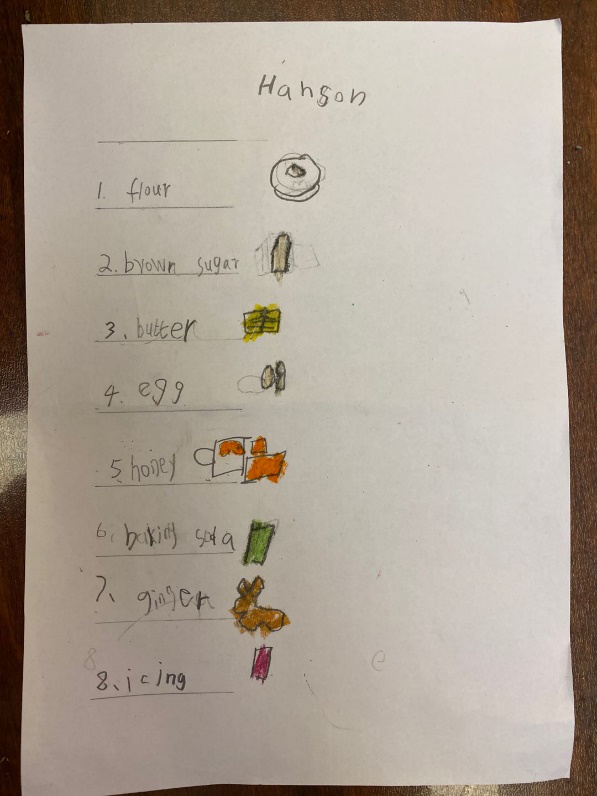 Hanson
1. flour
2. brown sugar
3. butter
4. egg
5. honey
6. baking soda
7. ginger
8. icing